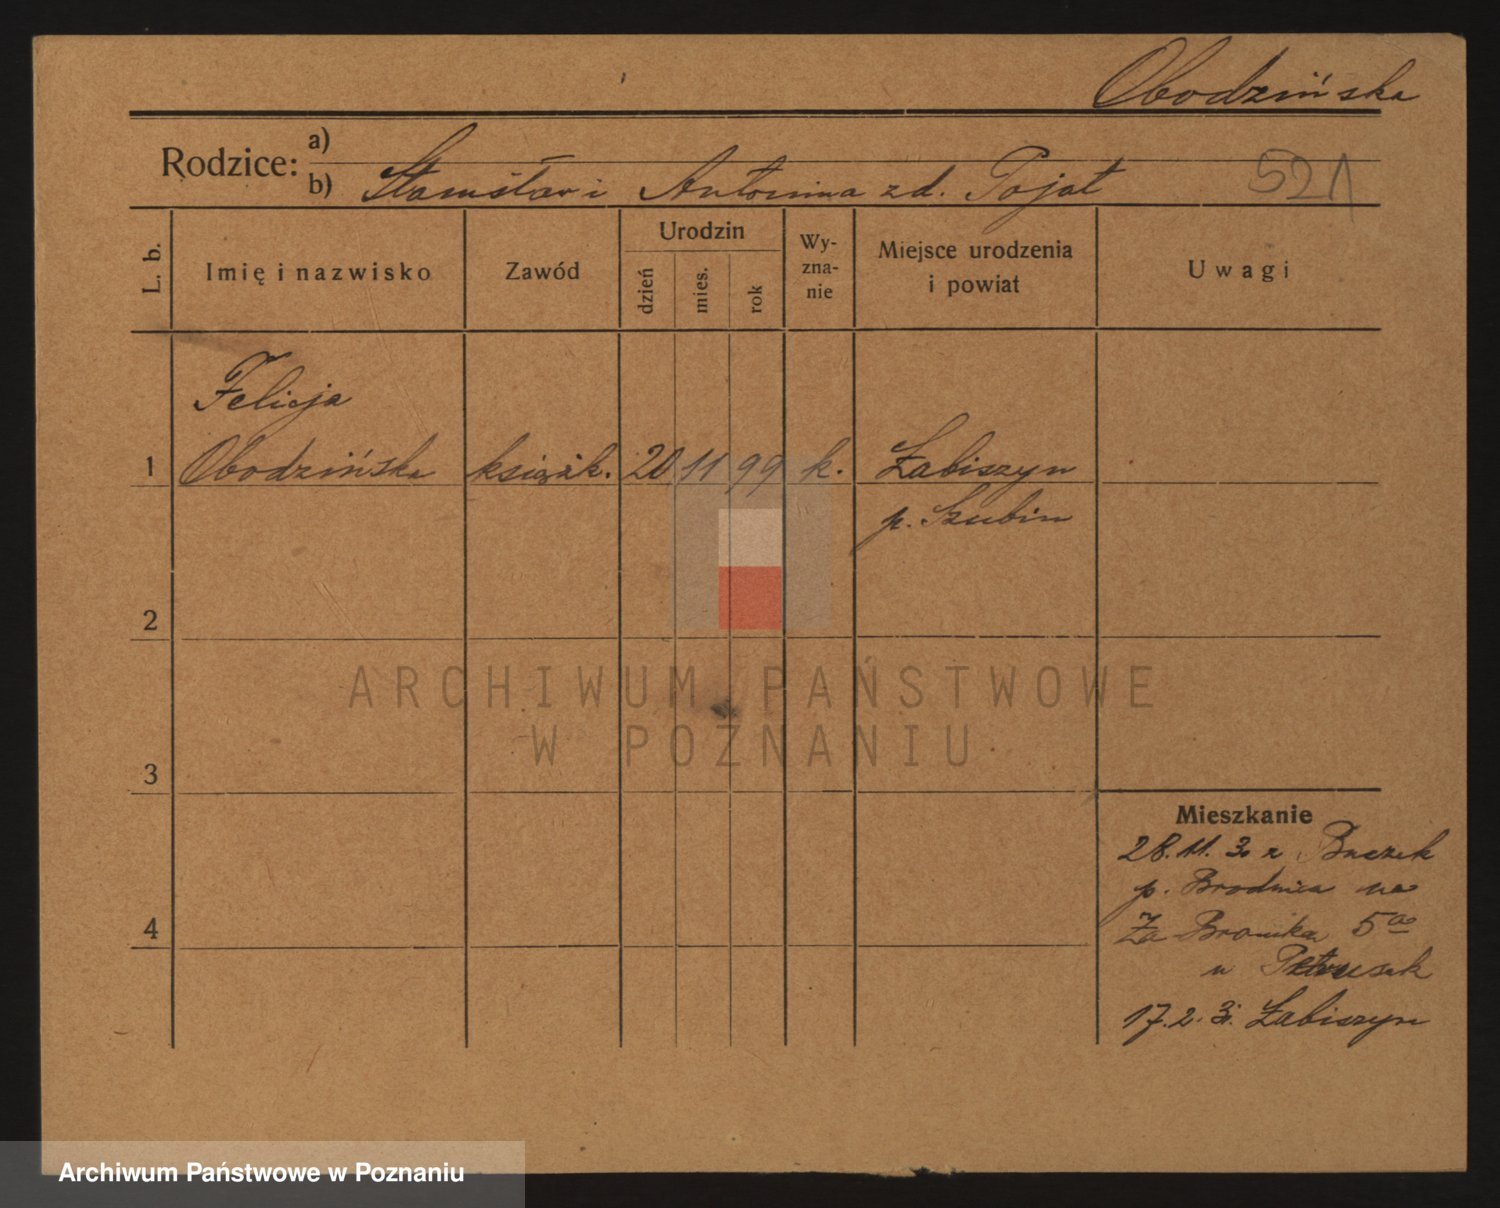 Obodzińska
Rodzice:
a)
b) Stanisław i Antonina zd. Pojat
521
L. b.
Imię i nazwisko
Zawód
Urodzin
dzień
mies.
rok
Wy-
zna-
nie
Miejsce urodzenia
i powiat
Uwagi
Felicja
1 Obodzińska książk. 20 11 99 k. Łabiszyn
p. Szubin
2
3
4
Mieszkanie
28.11. 3. z Buczek
p. Brodnica na
Za Bramką 5a
u Petrusak
17.2.3. Łabiszyn
ARCHIWUM PAŃSTWOWE
W POZNANIU
Archiwum Państwowe w Poznaniu